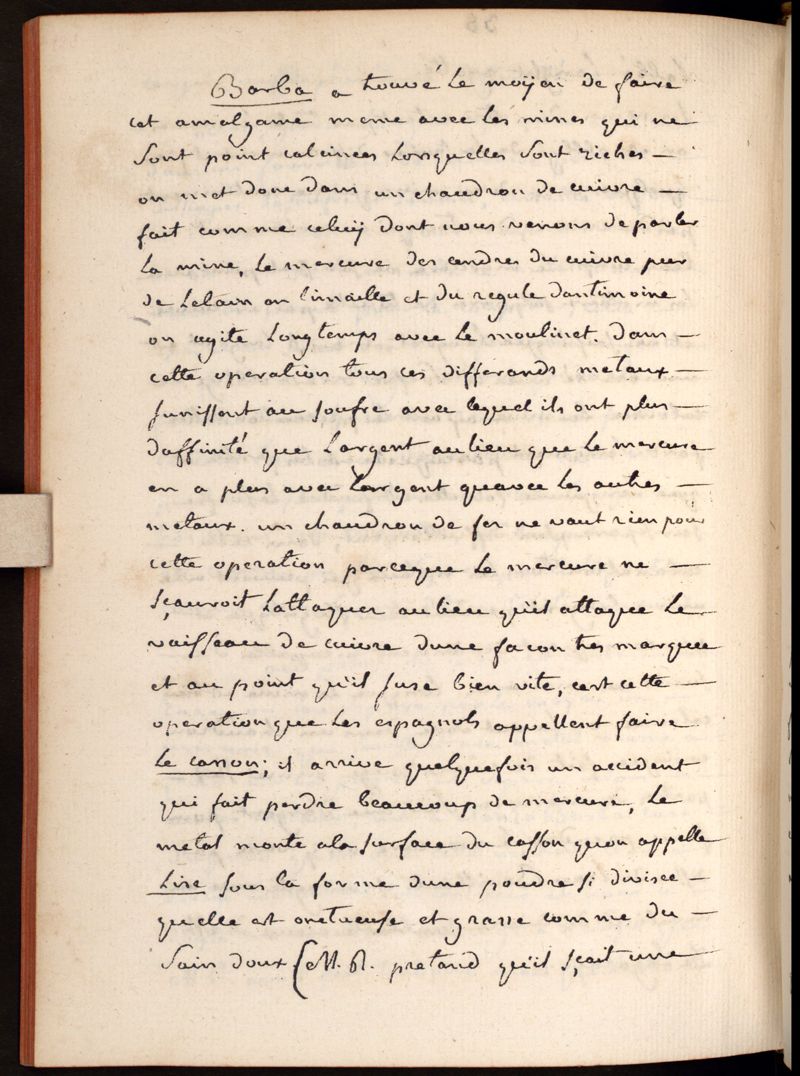 Barba a trouvé le moÿen de faire
cet amalgame meme avec les mines qui ne
sont point calcinees lorsquelles sont riches —
on met donc dans un chaudron de cuivre —
fait comme celuÿ dont nous venons de parler
la mine, le mercure des cendres du cuivre pur
de letain en limaille et du regule dantimoine
on agite longtemps avec le moulinet. dans —
cette operation tous ces differands metaux —
sunissent au soufre avec lequel ils ont plus —
daffinité que largent aulieu que le mercure
en a plus avec largent quavec les autres —
metaux. un chaudron de fer ne vaut rien pour
cette operation parceque le mercure ne —
sçauroit lattaquer aulieu qu'il attaque le
vaisseau de cuivre dune facon tres marquee
et au point qu'il suse bien vite, cest cette —
operation que les espagnols appellent faire
le casson; il arrive quelquefois un accident
qui fait perdre beaucoup de mercure, le
metal monte ala surface du casson qu'on appelle
Lise sous la forme dune poudre si divisee —
quelle est onctueuse et grasse comme du —
Sain doux (M. R. pretend qu'il sçait une